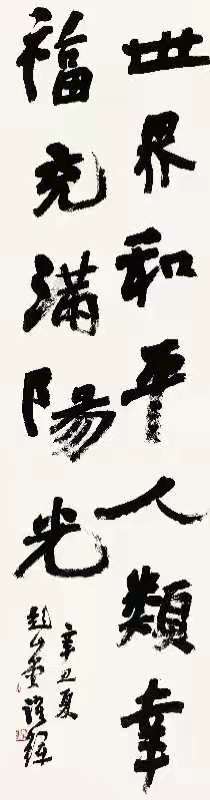 世界和平人類幸
福充滿陽光
辛丑夏